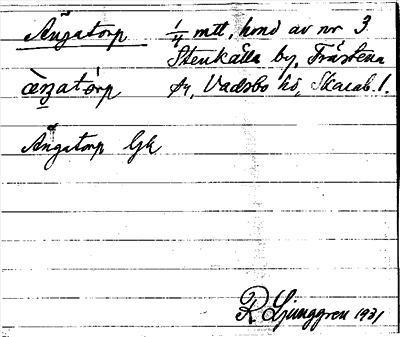 Ängatorp 1/4 mtl, hmd av nr 3
Stenkälla by, Fråstena
àŋatórp sn, Vadsbo hd, Skarab. l.
Ängatorp Gjk
R. Ljunggren 1931